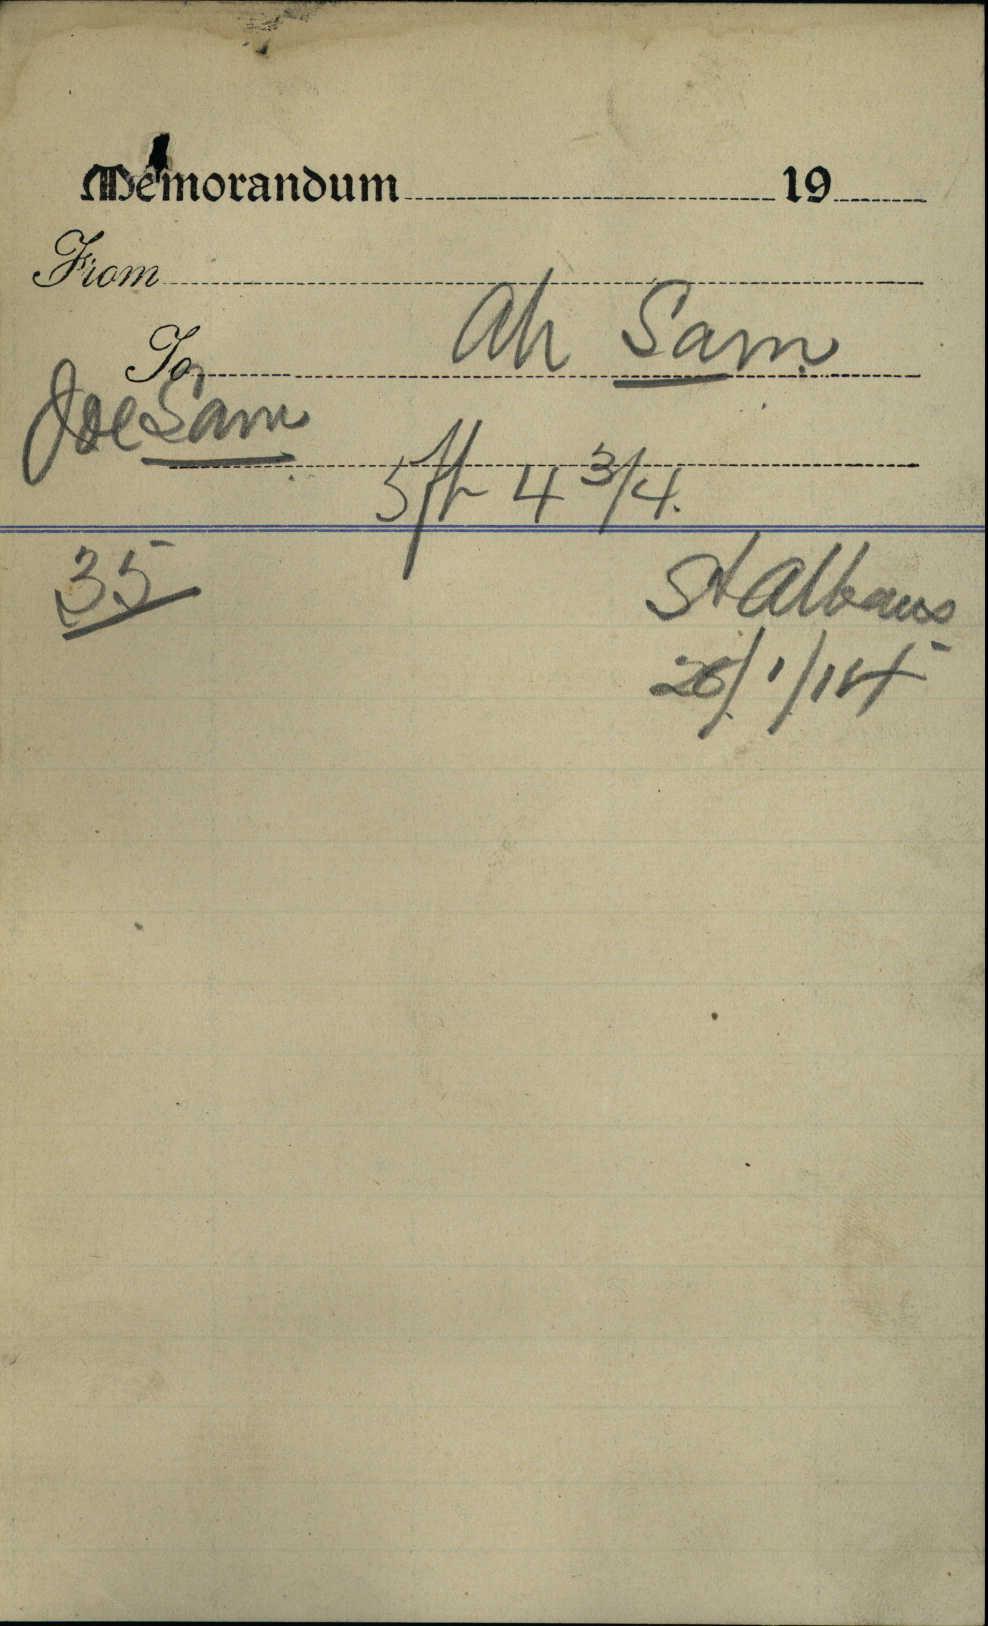 Memorandum 19
From
To Ah Sam
Joe Sam
5 ft 4 3/4.
35 St Albans
26/1/14